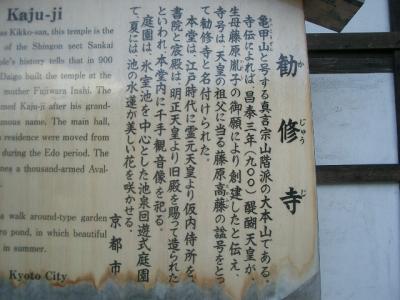 Kaju-ji
as Kikko-san, this temple is the
of the Shingon sect Sankai
ple's history tells that in 900
Daigo built the temple at the
mother Fujiwara Inshi. The
med Kaju-ji after his grand-
umous name. The main hall,
s residence were moved from
during the Edo period. The
nes a thousand-armed Aval-
a walk around-type garden
ro pond, in which beautiful
in summer.
Kyoto City
勧修寺
じゅう
じ
亀甲山と号する真言宗山階派の大本山である。
寺伝によれば昌泰三年(九〇〇)醍醐天皇が、
生母藤原胤子の御願により創建したと伝え、
寺号は天皇の祖父に当る藤原高藤の諡号をとっ
て勧修寺と名付けられた。
本堂は、江戸時代に霊元天皇より仮内侍所を、
書院と宸殿は明正天皇より旧殿を賜って造られた
といわれ、本堂内に千手観音像を祀る。
庭園は、氷室池を中心とした池泉回遊式庭園
で、夏には池の水蓮が美しい花を咲かせる。
京都市